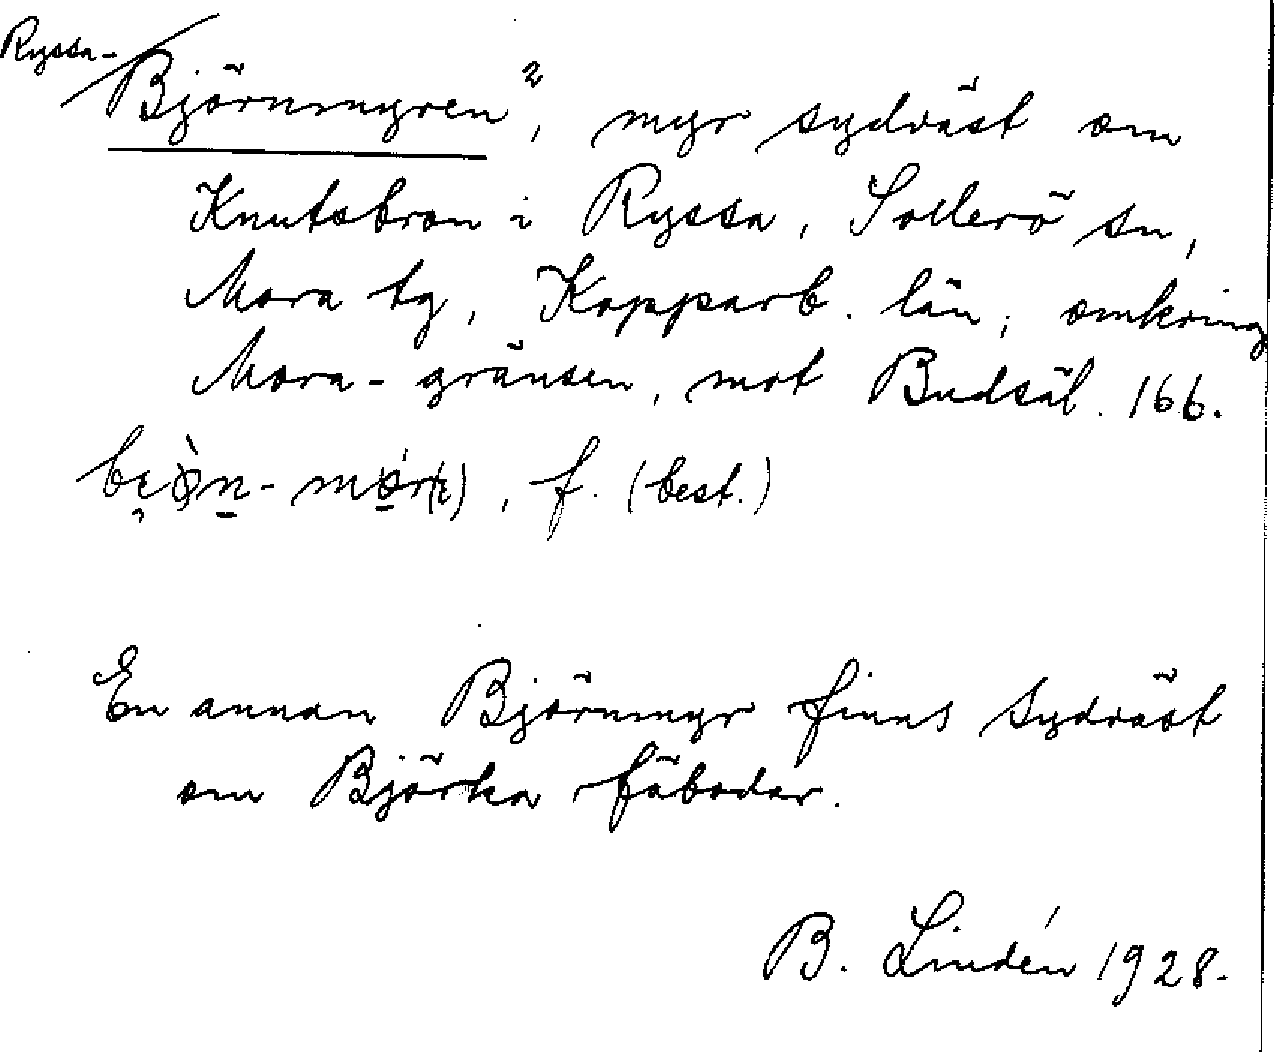 Ryssa-
Björnmyren², myr sydväst om
Knutsbron i Ryssa, Sollerö sn,
Mora tg, Kopparb. län, omkring
Mora-gränsen, mot Budsäl. 166.
f. (best.)
En annan Björnmyr finns sydväst
om Björka fäbodar.
B. Lindén 1928.